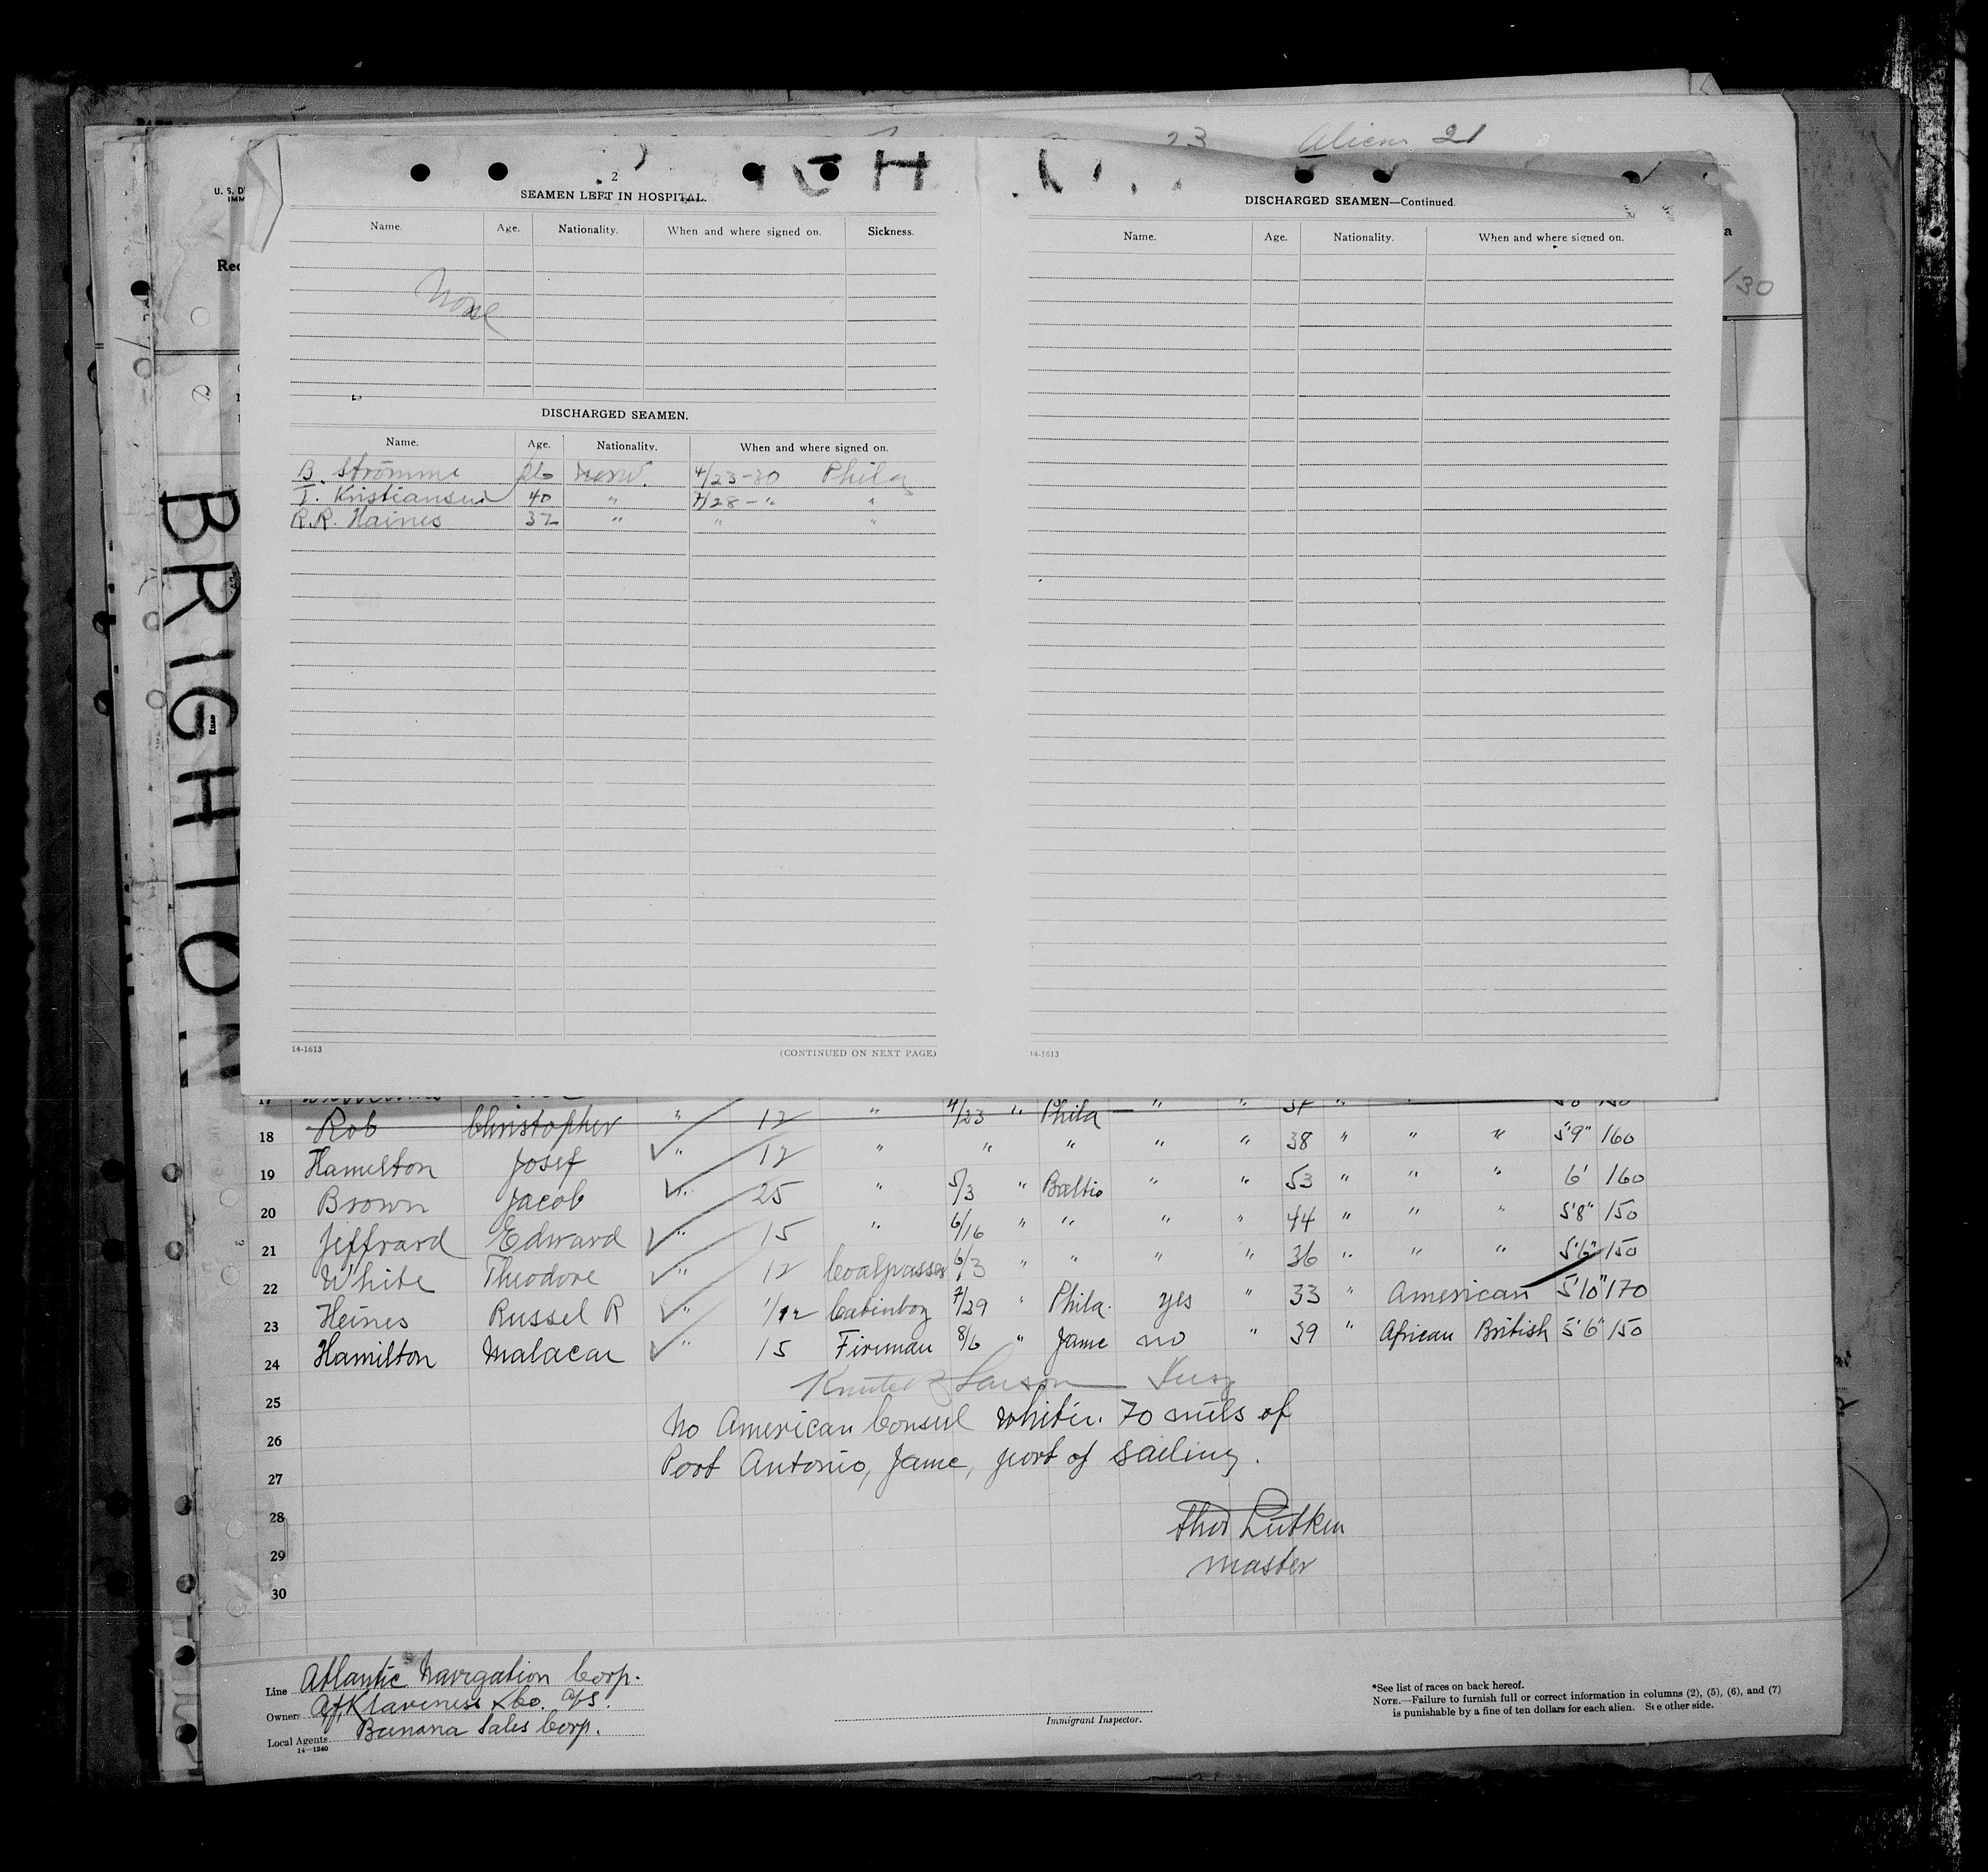 Aliens 21
2
SEAMEN LEFT IN HOSPITAL.
Name. Age. Nationality. When and where signed on. Sickness.
None
DISCHARGED SEAMEN.
Name. Age. Nationality. When and where signed on.
B. Strömme Norw. 4/23-30 Phila
T. Kristiansen 40 " 7/28 - " "
R.R. Haines 32 " " "
14-1613 (CONTINUED ON NEXT PAGE)
DISCHARGED SEAMEN—Continued.
Name. Age. Nationality. When and where signed on.
14-1613
/30
BRIGHTON
17
Rob Christopher " 12 " 4/23 " Phila " "
18 Hamilton Josef " 12 " " " " " 38 " " " 5'9" 160
19 Brown Jacob " 25 " 5/3 " Baltio " " 53 " " " 6' 160
20 Jeffrard Edward " 15 " 6/16 " " " " 44 " " " 5'8" 150
21 White Theodore " 12 Coalpasser 6/3 " " " " 36 " " " 5'6" 150
22 Heines Russel R " 1/12 Cabinboy 7/29 " Phila. yes " 33 " American 5'10" 170
23 Hamilton Malacae " 15 Fireman 8/6 " Jamc no " 39 " African British 5'6" 150
24
25 No American Consul whitin. 70 miles of
26 Port Antonio, Jamc, port of sailing.
27
28 Thor Lütken
29 master
30
Line Atlantic Navigation Corp.
Owners A.F. Klaveness & Co. A/S.
Local Agents Banana Sales Corp.
14—1240
Immigrant Inspector.
*See list of races on back hereof.
NOTE.—Failure to furnish full or correct information in columns (2), (5), (6), and (7)
is punishable by a fine of ten dollars for each alien. See other side.